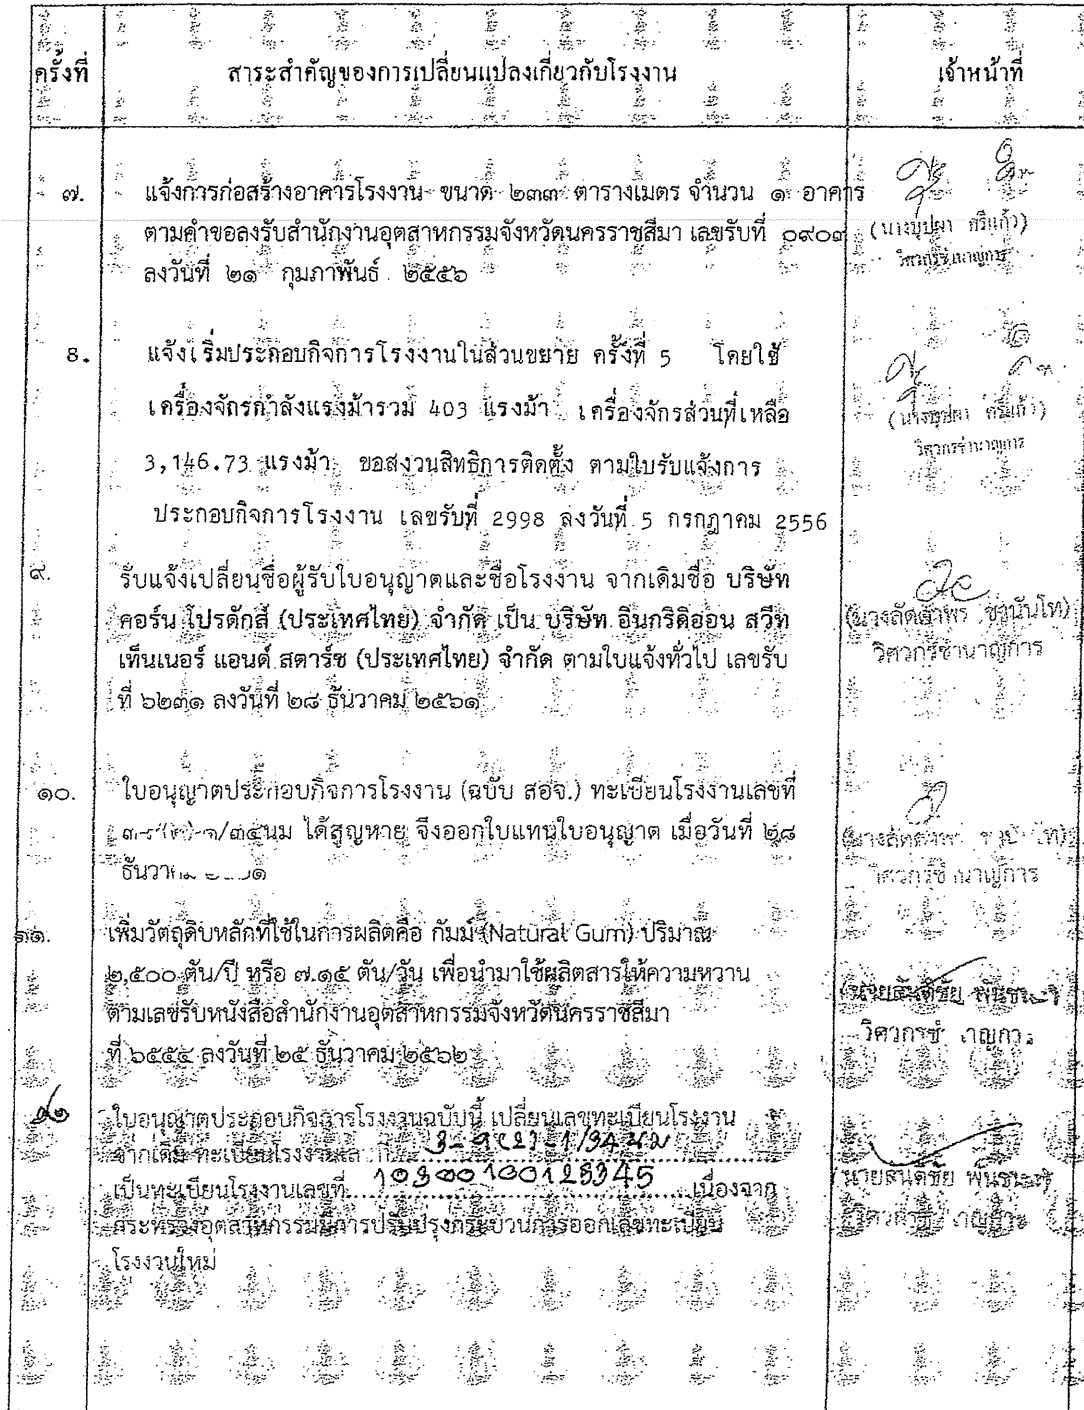 ครั้งที่ สาระสำคัญของการเปลี่ยนแปลงเกี่ยวกับโรงงาน เจ้าหน้าที่
๗. แจ้งการก่อสร้างอาคารโรงงาน ขนาด ๒๓๓ ตารางเมตร จำนวน ๑ อาคาร
ตามคำขอลงรับสำนักงานอุตสาหกรรมจังหวัดนครราชสีมา เลขรับที่ ๐๙๐๓
ลงวันที่ ๒๑ กุมภาพันธ์ ๒๕๕๖
(นางบุปผา ศรีแก้ว)
วิศวกรชำนาญการ
8. แจ้งเริ่มประกอบกิจการโรงงานในส่วนขยาย ครั้งที่ 5 โดยใช้
เครื่องจักรกำลังแรงม้ารวม 403 แรงม้า เครื่องจักรส่วนที่เหลือ
3,146.73 แรงม้า ขอสงวนสิทธิการติดตั้ง ตามใบรับแจ้งการ
ประกอบกิจการโรงงาน เลขรับที่ 2998 ลงวันที่ 5 กรกฎาคม 2556
(นางบุปผา ศรีแก้ว)
วิศวกรชำนาญการ
๙. รับแจ้งเปลี่ยนชื่อผู้รับใบอนุญาตและชื่อโรงงาน จากเดิมชื่อ บริษัท
คอร์น โปรดักส์ (ประเทศไทย) จำกัด เป็น บริษัท อินกริดิออน สวีท
เท็นเนอร์ แอนด์ สตาร์ช (ประเทศไทย) จำกัด ตามใบแจ้งทั่วไป เลขรับ
ที่ ๖๒๓๑ ลงวันที่ ๒๘ ธันวาคม ๒๕๖๑
(นางลัดดาพร ชานันโท)
วิศวกรชำนาญการ
๑๐. ใบอนุญาตประกอบกิจการโรงงาน (ฉบับ สอจ.) ทะเบียนโรงงานเลขที่
๑/๓๔นม ได้สูญหาย จึงออกใบแทนใบอนุญาต เมื่อวันที่ ๒๘
(นางลัดดาพร ชานันโท)
วิศวกรชำนาญการ
๑๑. เพิ่มวัตถุดิบหลักที่ใช้ในการผลิตคือ กัมม์ (Natural Gum) ปริมาณ
๒,๕๐๐ ตัน/ปี หรือ ๗.๑๕ ตัน/วัน เพื่อนำมาใช้ผลิตสารให้ความหวาน
ตามเลขรับหนังสือสำนักงานอุตสาหกรรมจังหวัดนครราชสีมา
ที่ ๖๕๕๔ ลงวันที่ ๒๕ ธันวาคม ๒๕๖๒
๑๒ ใบอนุญาตประกอบกิจการโรงงานฉบับนี้ เปลี่ยนเลขทะเบียนโรงงาน
จากเดิม ทะเบียนโรงงานเลขที่ 3-9(2)-1/34นม
เป็นทะเบียนโรงงานเลขที่ 10300100125345 เนื่องจาก
กระทรวงอุตสาหกรรมมีการปรับปรุงกระบวนการออกเลขทะเบียน
โรงงานใหม่